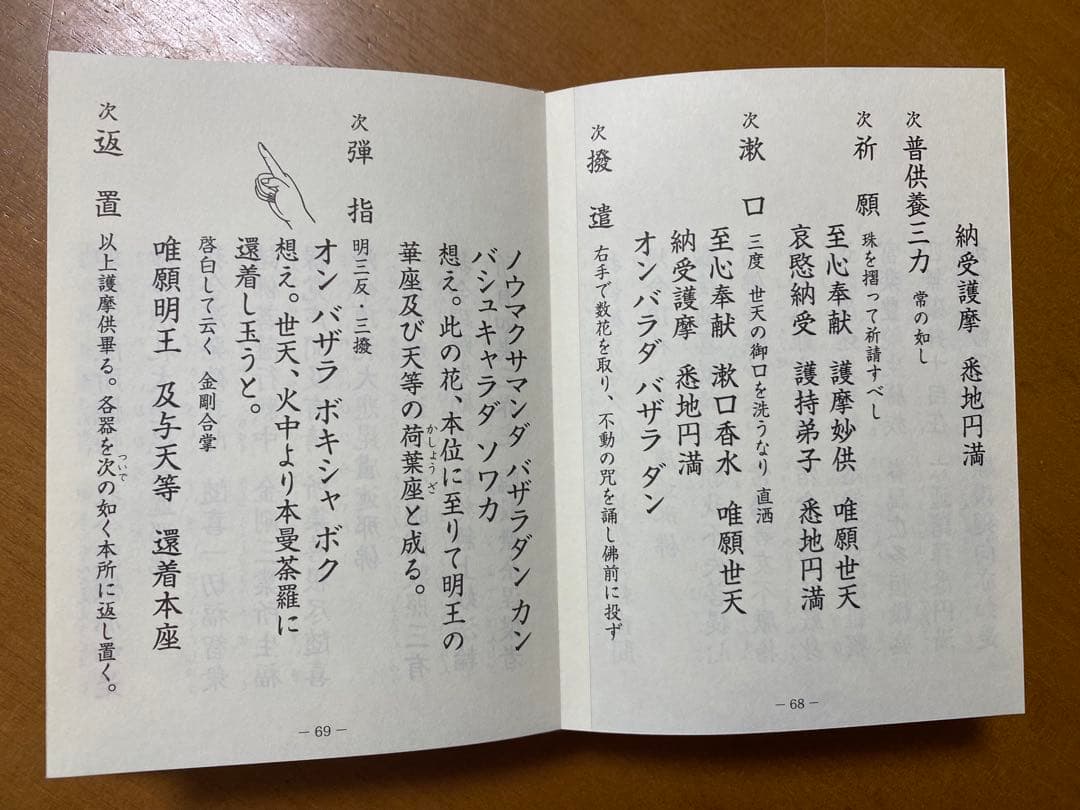 納受護摩　悉地円満
次 普供養三力　常の如し
次 祈　願　珠を摺って祈請すべし
至心奉献　護摩妙供　唯願世天
哀愍納受　護持弟子　悉地円満
次 漱　口　三度　世天の御口を洗うなり　直洒
至心奉献　漱口香水　唯願世天
納受護摩　悉地円満
オン バラダ バザラ ダン
次 撥　遣　右手で数花を取り、不動の咒を誦し佛前に投ず
－68－
ノウマクサマンダ バザラダン カン
バシュキャラダ ソワカ
想え。此の花、本位に至りて明王の
華座及び天等の荷葉座と成る。
かしょうざ
次 弾　指　明三反・三撥
オン バザラ ボキシャ ボク
想え。世天、火中より本曼荼羅に
還着し玉うと。
啓白して云く　金剛合掌
唯願明王　及与天等　還着本座
次 返　置　以上護摩供畢る。各器を次の如く本所に返し置く。
ついで
－69－